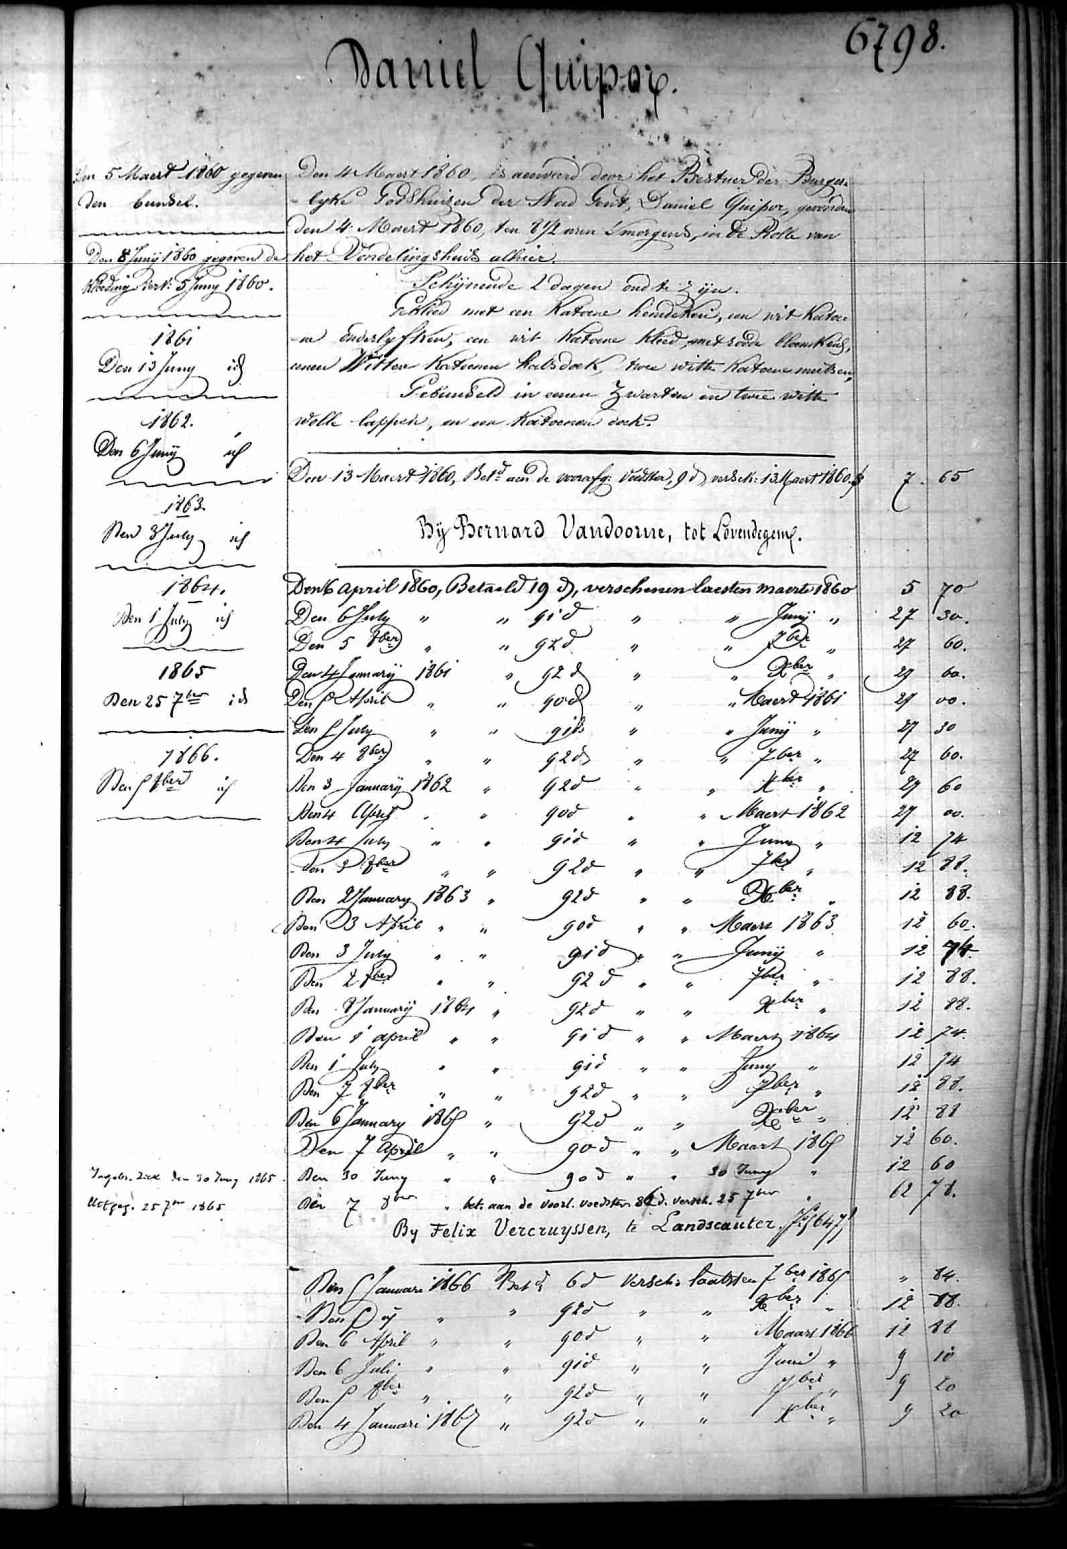 6798.
Daniel Quipor.
Den 5 Maert 1860 gegeven
den bundel.
Den 8 Junij 1860 gegeven de
kleeding vert: 5 Juny 1860.
1861
Den 13 Juny id
1862.
Den 6 Junij id
1863.
Den 3 July id
1864.
Den 1 July id
1865
Den 25 7ber id
1866.
Den 5 8ber id
Den 4 Maert 1860, is aenveerd door het Bestuer der Burger-
-lyke Godshuizen der Stad Gent, Daniel Quipor, gevonden
den 4 Maert 1860, ten 8 1/2 uren 's morgens, in de Rolle van
het Vondelingshuis alhier.
Schijnende 2 dagen oud te zijn.
Gekleed met een Katoene hemdeken, een wit Katoe-
-ne onderlyfken, een wit Katoene kleed, met roode bloemkens,
eenen Witten Katoenen halsdoek, twee witte Katoene mutsen,
Gebundeld in eenen zwarten en twee witte
wolle lappen, en een Katoenen doek.
Den 13 Maert 1860, Betd aen de voorafg: voedster, 9 d versch: 13 Maert 1860. 7 65
Bij Bernard Vandoorne, tot Lovendegem.
Den 6 April 1860, Betaeld 19 d, verschenen laesten maerte 1860 5 70
Den 6 July " " 91 d " " Junij " 27 30.
Den 5 8ber " " 92 d " " 7ber " 27 60.
Den 4 January 1861 " 92 d " " Xber " 27 60.
Den 5 April " " 90 d " " Maert 1861 27 00.
Den 5 July " " 91 d " " Junij " 27 30
Den 4 8ber " " 92 d " " 7ber " 27 60.
Den 3 Januarij 1862 " 92 d " " Xber " 27 60
Den 4 April " " 90 d " " Maert 1862 27 00.
Den 4 July " " 91 d " " Juny " 12 74
Den 3 8ber " " 92 d " " 7ber " 12 88.
Den 2 January 1863 " 92 d " " Xber " 12 88.
Den 3 April " " 90 d " " Maert 1863 12 60.
Den 3 July " " 91 d " " Junij " 12 74.
Den 2 8ber " " 92 d " " 7ber " 12 88.
Den 8 Januarij 1864 " 92 d " " Xber " 12 88.
Den 1 april " " 91 d " " Maert 1864 12 74.
Den 1 July " " 91 d " " Juny " 12 74
Den 7 8ber " " 92 d " " 7ber " 12 88.
Den 6 January 1865 " 92 d " " Xber " 12 88
Den 7 April " " 90 d " " Maart 1865 12 60.
Ingebr. Ziek den 30 Juny 1865. Den 30 Juny " " 90 d " " 30 Juny " 12 60
Uitgeg. 25 7ber 1865 Den 7 8ber " bet. aan de voorl. voedster. 86 d. versch. 25 7ber " 62 78.
By Felix Vercruyssen, te Landscauter.
Den 5 Januari 1866 Betd 6 d versch: laatsten 7ber 1865 " 84.
Den 5 id " " 92 d " " Xber " 12 88.
Den 6 April " " 90 d " " Maart 1866 12 88
Den 6 Juli " " 91 d " " Juni " 9 10
Den 5 8ber " " 92 d " " 7ber " 9 20
Den 4 Januari 1867 " 92 d " " Xber " 9 20